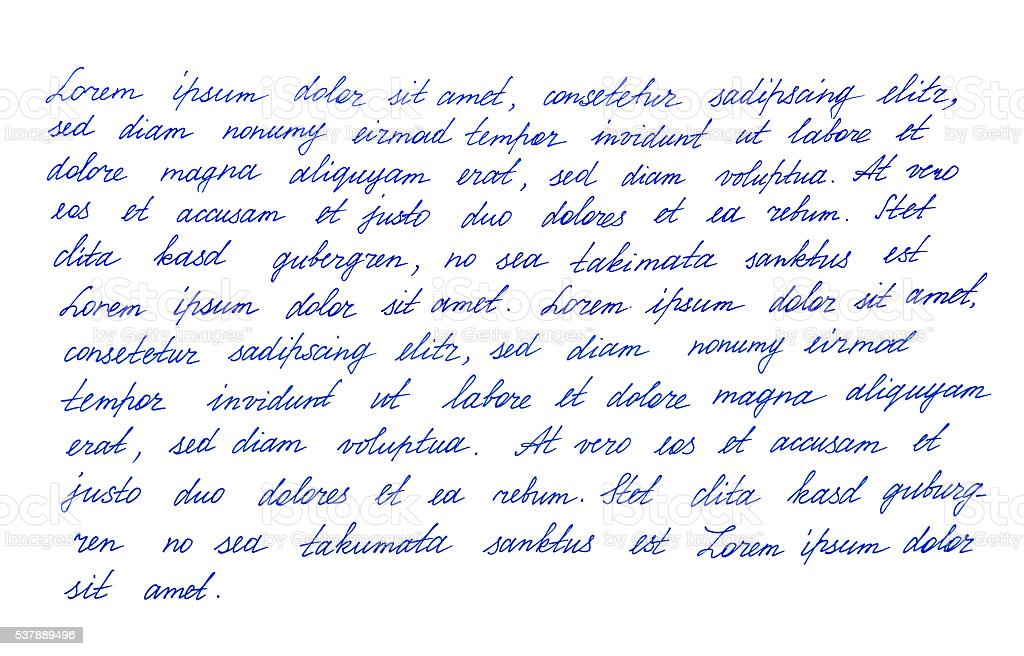 Lorem ipsum dolor sit amet, consetetur sadipscing elitr,
sed diam nonumy eirmod tempor invidunt ut labore et
dolore magna aliquyam erat, sed diam voluptua. At vero
eos et accusam et justo duo dolores et ea rebum. Stet
clita kasd gubergren, no sea takimata sanktus est
Lorem ipsum dolor sit amet. Lorem ipsum dolor sit amet,
consetetur sadipscing elitr, sed diam nonumy eirmod
tempor invidunt ut labore et dolore magna aliquyam
erat, sed diam voluptua. At vero eos et accusam et
justo duo dolores et ea rebum. Stet clita kasd guburg-
ren no sea takumata sanktus est Lorem ipsum dolor
sit amet.
iStock
by Getty Images™
537889496